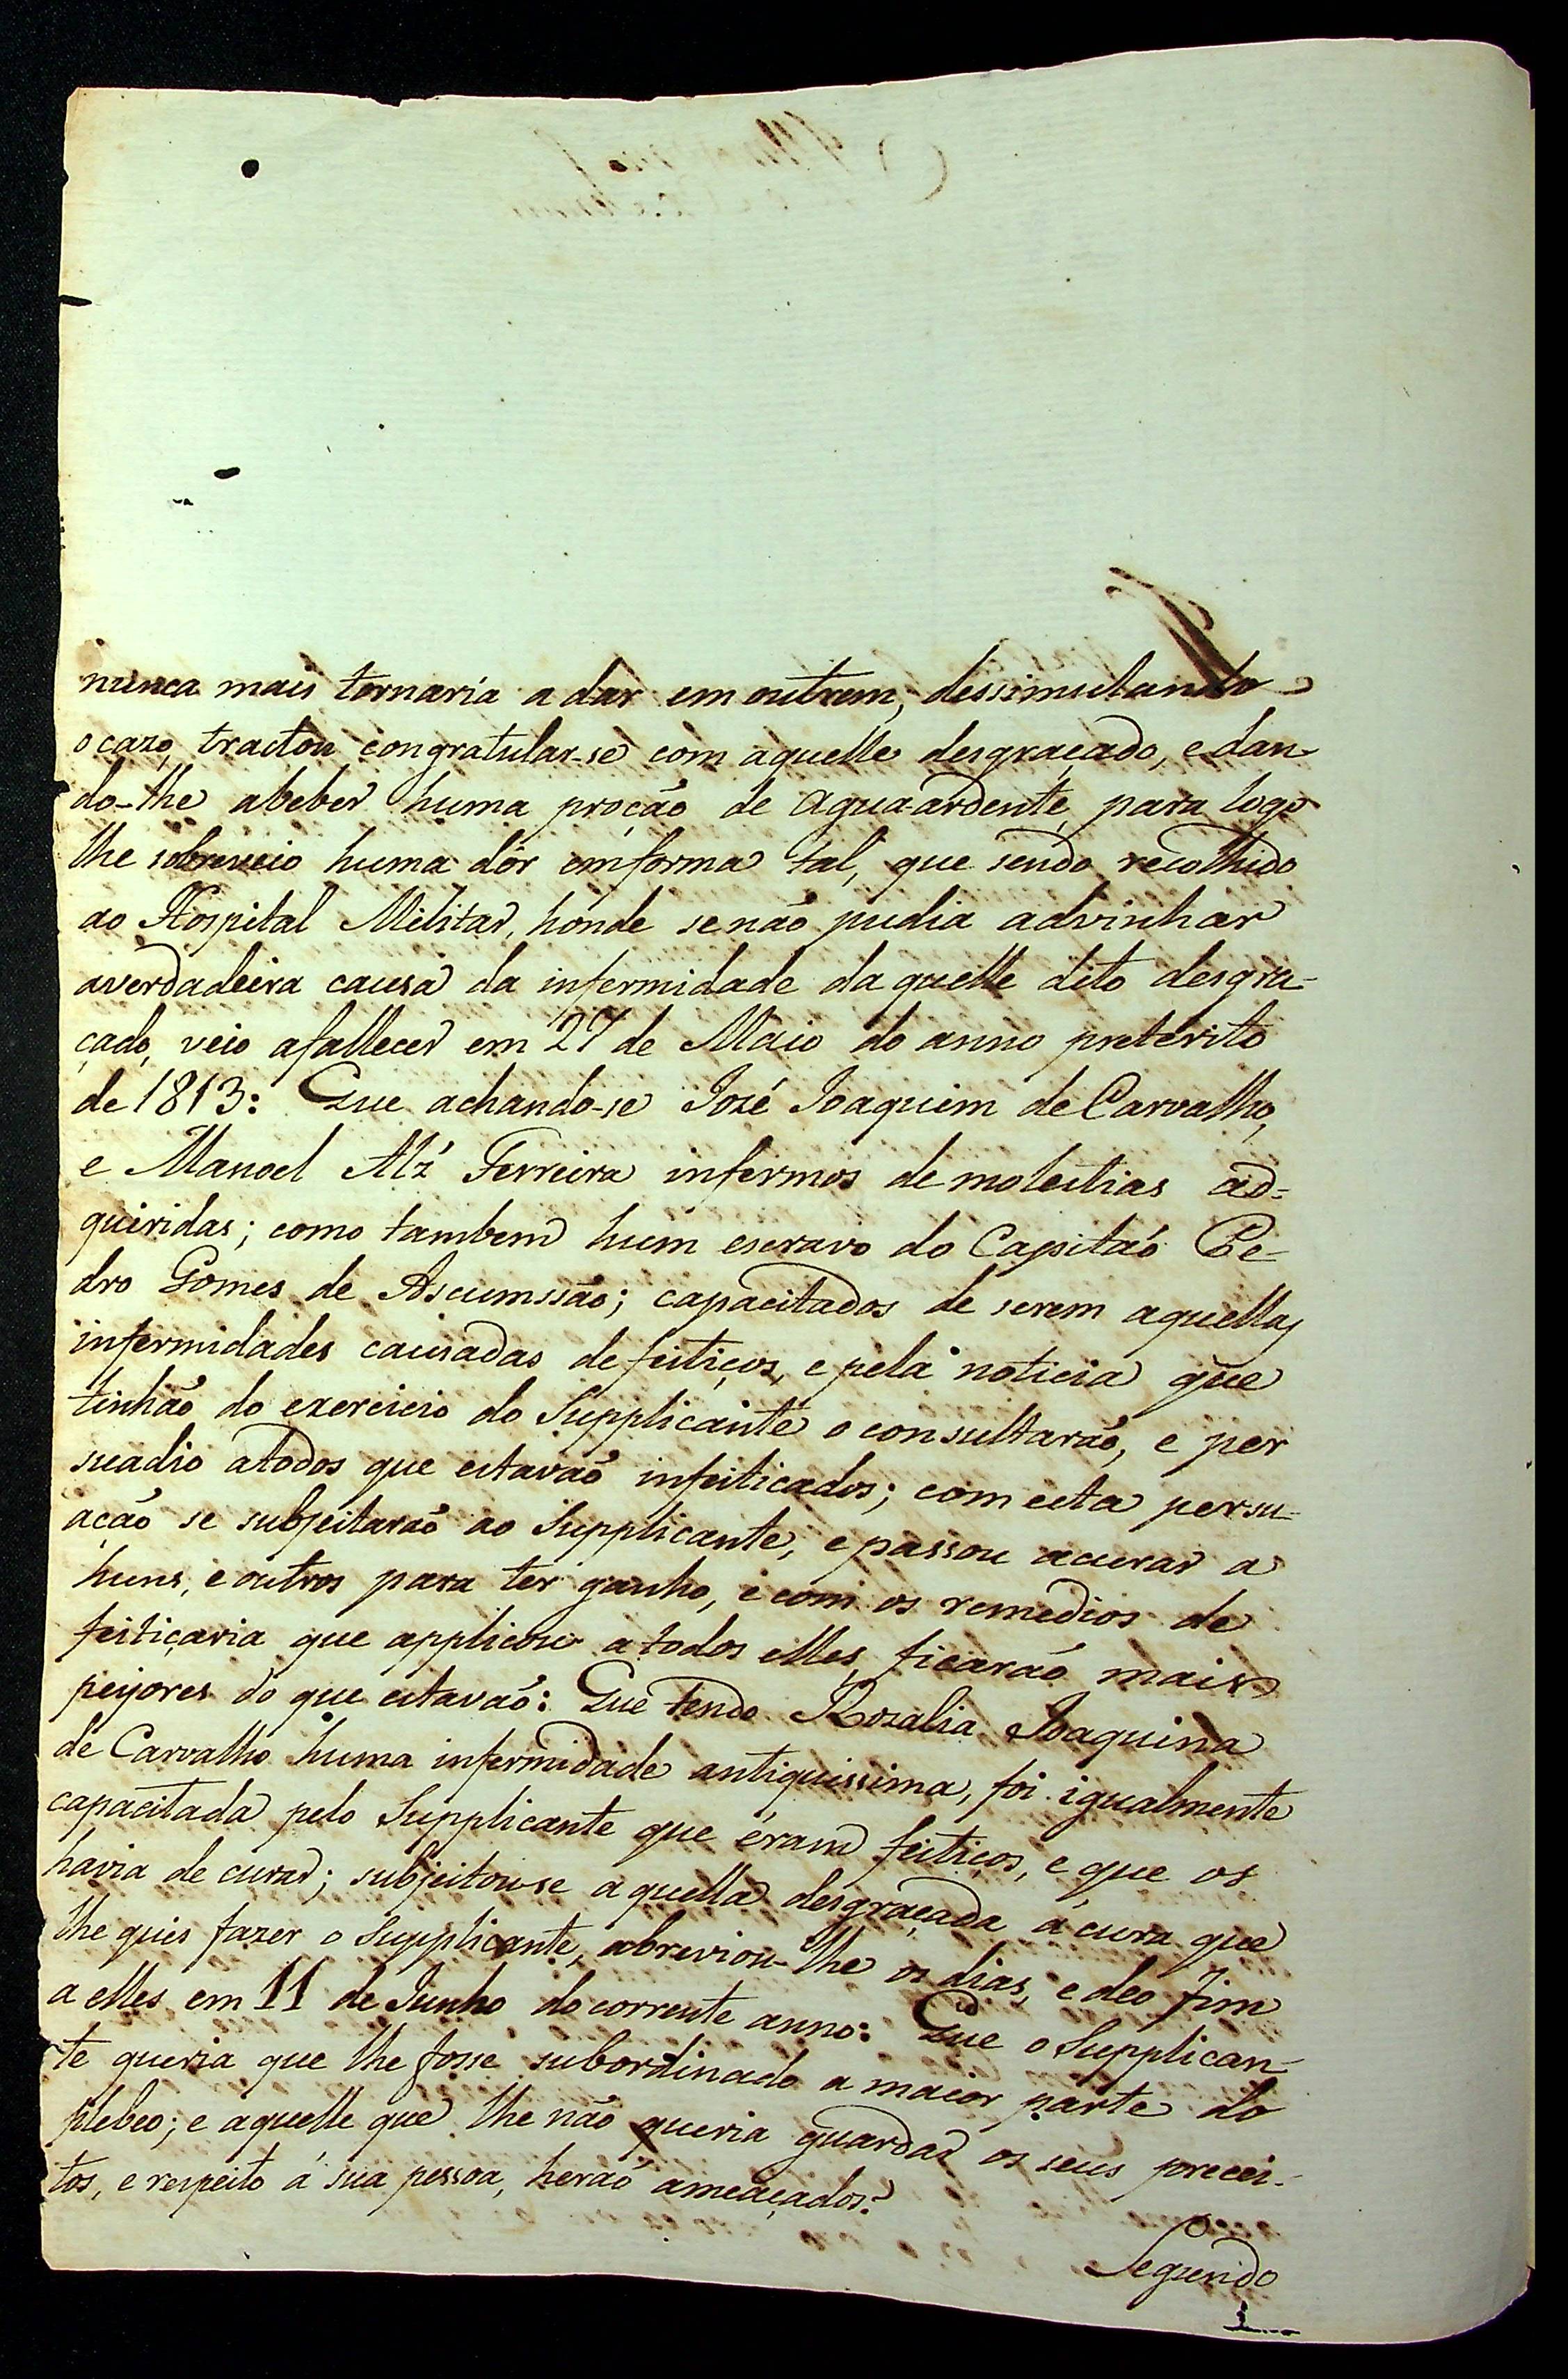 nunca mais tornaria a dar em outrem, dessimulando
o cazo, tractou congratular-se com aquelle desgraçado, e dan-
do-lhe abeber huma proção de Aguaardente, para logo
lhe sobreveio huma dôr emforma tal, que sendo recolhido
ao Hospital Militar, hónde senão pudia advinhar
averdadeira causa da infermidade daquelle dito desgra-
çado, veio afallecer em 27 de Maio do anno preterito
de 1813: Que achando-se Jozé Joaquim de Carvalho,
e Manoel Alz' Ferreira infermos de molestias ad=
queiridas; como tambem hum escravo do Capitaõ Pe-
dro Gomes de Ascumssão; capacitados de serem aquellas
infermidades causadas de feitiços, e pela noticia que
tinhaõ do exercicio do Supplicante o consultaraõ, e per
suadio atodos que estavaõ infeiticados; com esta persu-
açaõ se subjeitaraõ ao Supplicante, e passou acurar a
huns, e outros para ter ganho, e com os remedios de
feitiçaria que applicou a todos elles, ficaraõ mais
peijores do que estavaõ: Que tendo Rozalia Joaquina
de Carvalho huma infermidade antiquissima, foi igualmente
capacitada pelo Supplicante que éram feitiços, e que os
havia de curar; subjeitou-se aquella desgraçada á cura que
lhe quis fazer o Supplicante, abreviou-lhe os dias, e deo fim
a elles em 11 de Junho do corrente anno: Que o Supplican-
te queria que lhe fosse subordinado a maior parte do
plebeo; e aquelle que lhe não queria guardar os seus precei-
tos, e respeito á sua pessoa, heraõ ameaçados?
Segundo